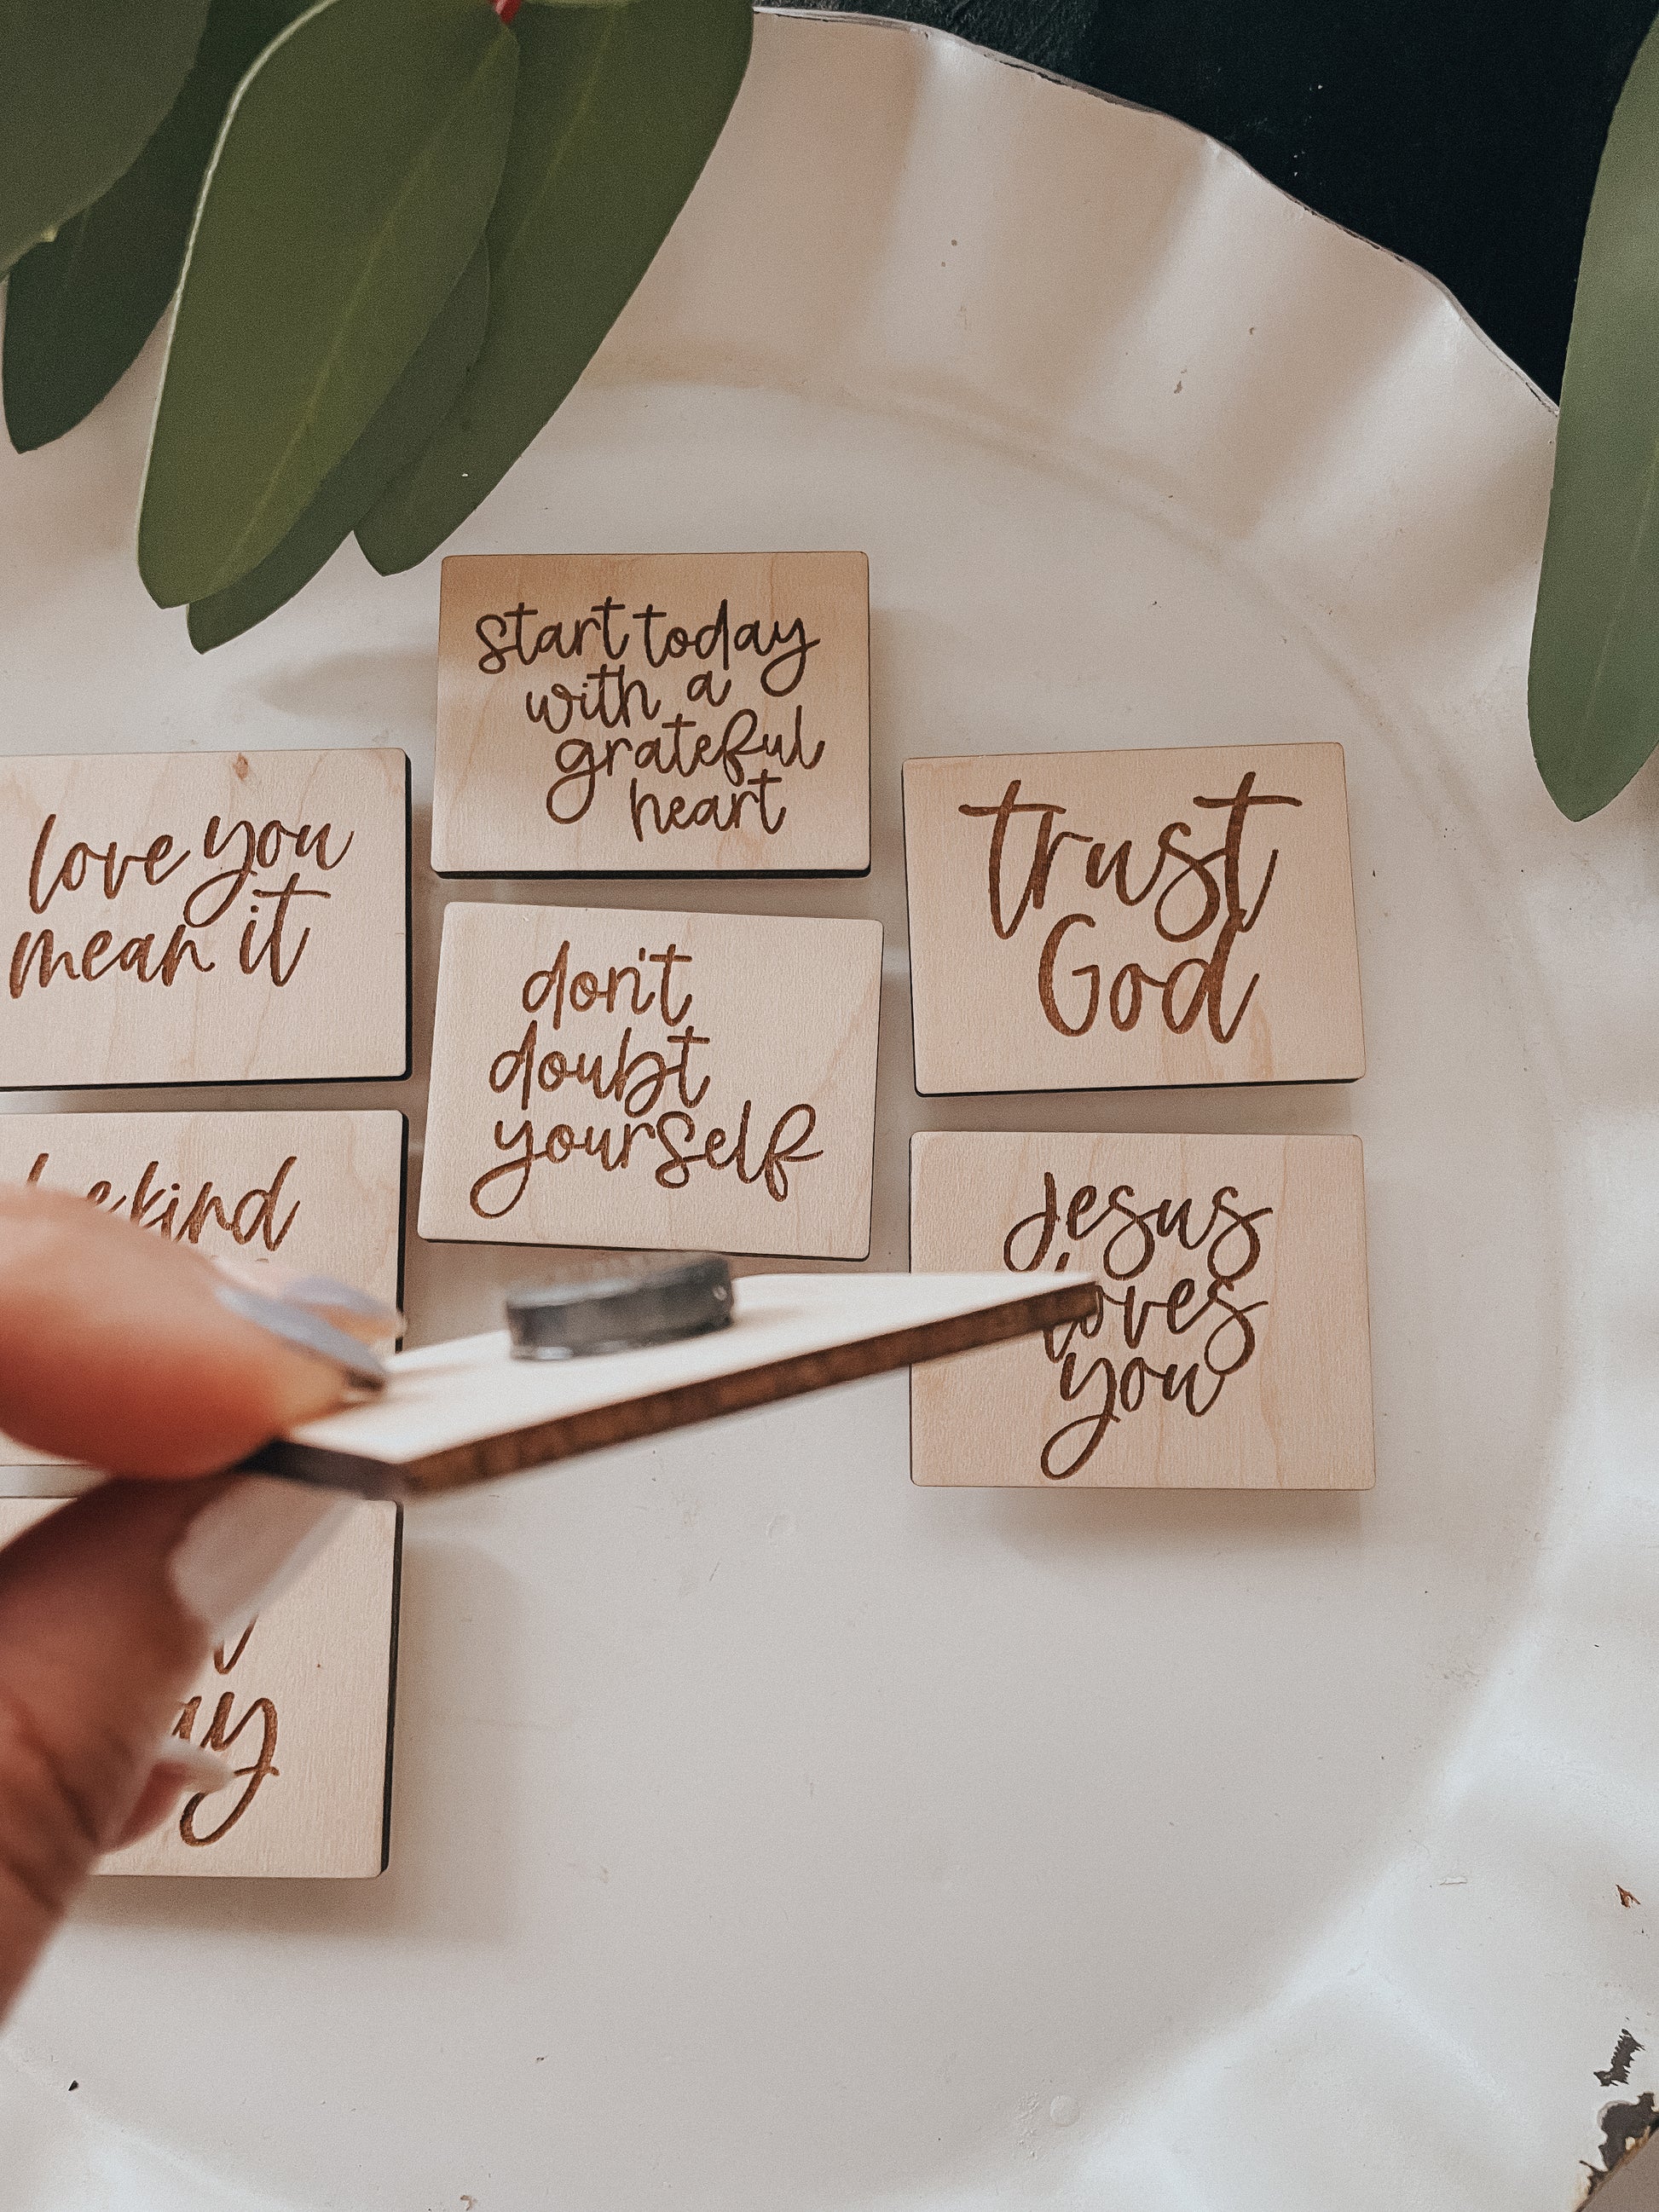 start today
with a
grateful
heart
love you
mean it
don't
doubt
yourself
trust
God
be kind
Jesus
loves
you